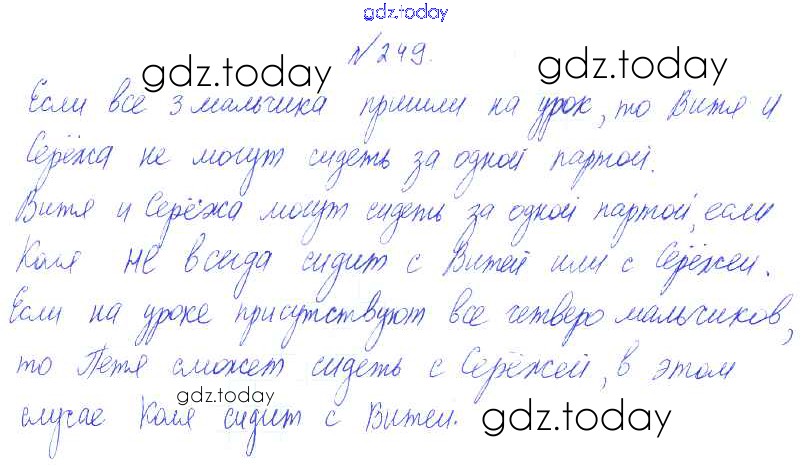 gdz.today
№249.
gdz.today gdz.today
Если все 3 мальчика пришли на урок, то Витя и
Серёжа не могут сидеть за одной партой.
Витя и Серёжа могут сидеть за одной партой, если
Коля не всегда сидит с Витей или с Серёжей.
Если на уроке присутствуют все четверо мальчиков,
то Петя сможет сидеть с Серёжей, в этом
случае Коля сидит с Витей.
gdz.today gdz.today